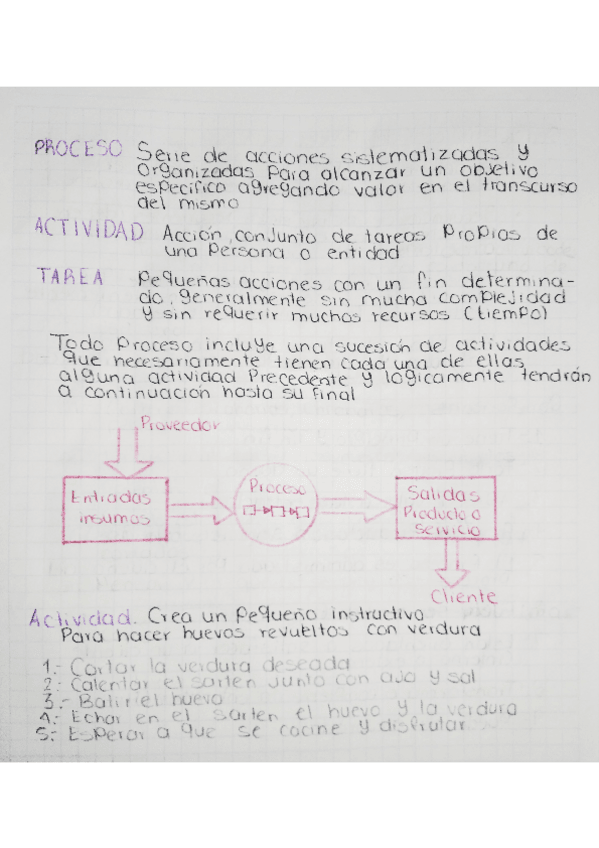 PROCESO Serie de acciones sistematizadas y
organizadas para alcanzar un objetivo
especifico agregando valor en el transcurso
del mismo
ACTIVIDAD Acción, conjunto de tareas propias de
una persona o entidad
TAREA Pequeñas acciones con un fin determina-
do, generalmente sin mucha complejidad
y sin requerir muchos recursos (tiempo)
Todo proceso incluye una sucesión de actividades
que necesariamente tienen cada una de ellas
alguna actividad precedente y lógicamente tendrán
a continuación hasta su final
Proveedor
Entradas
insumos
Proceso
Salidas
Producto o
servicio
Cliente
Actividad. Crea un pequeño instructivo
Para hacer huevos revueltos con verdura
1.- Cortar la verdura deseada
2.- Calentar el sarten junto con ajo y sal
3.- Batir el huevo
4.- Echar en el sarten el huevo y la verdura
5.- Esperar a que se cocine y disfrutar